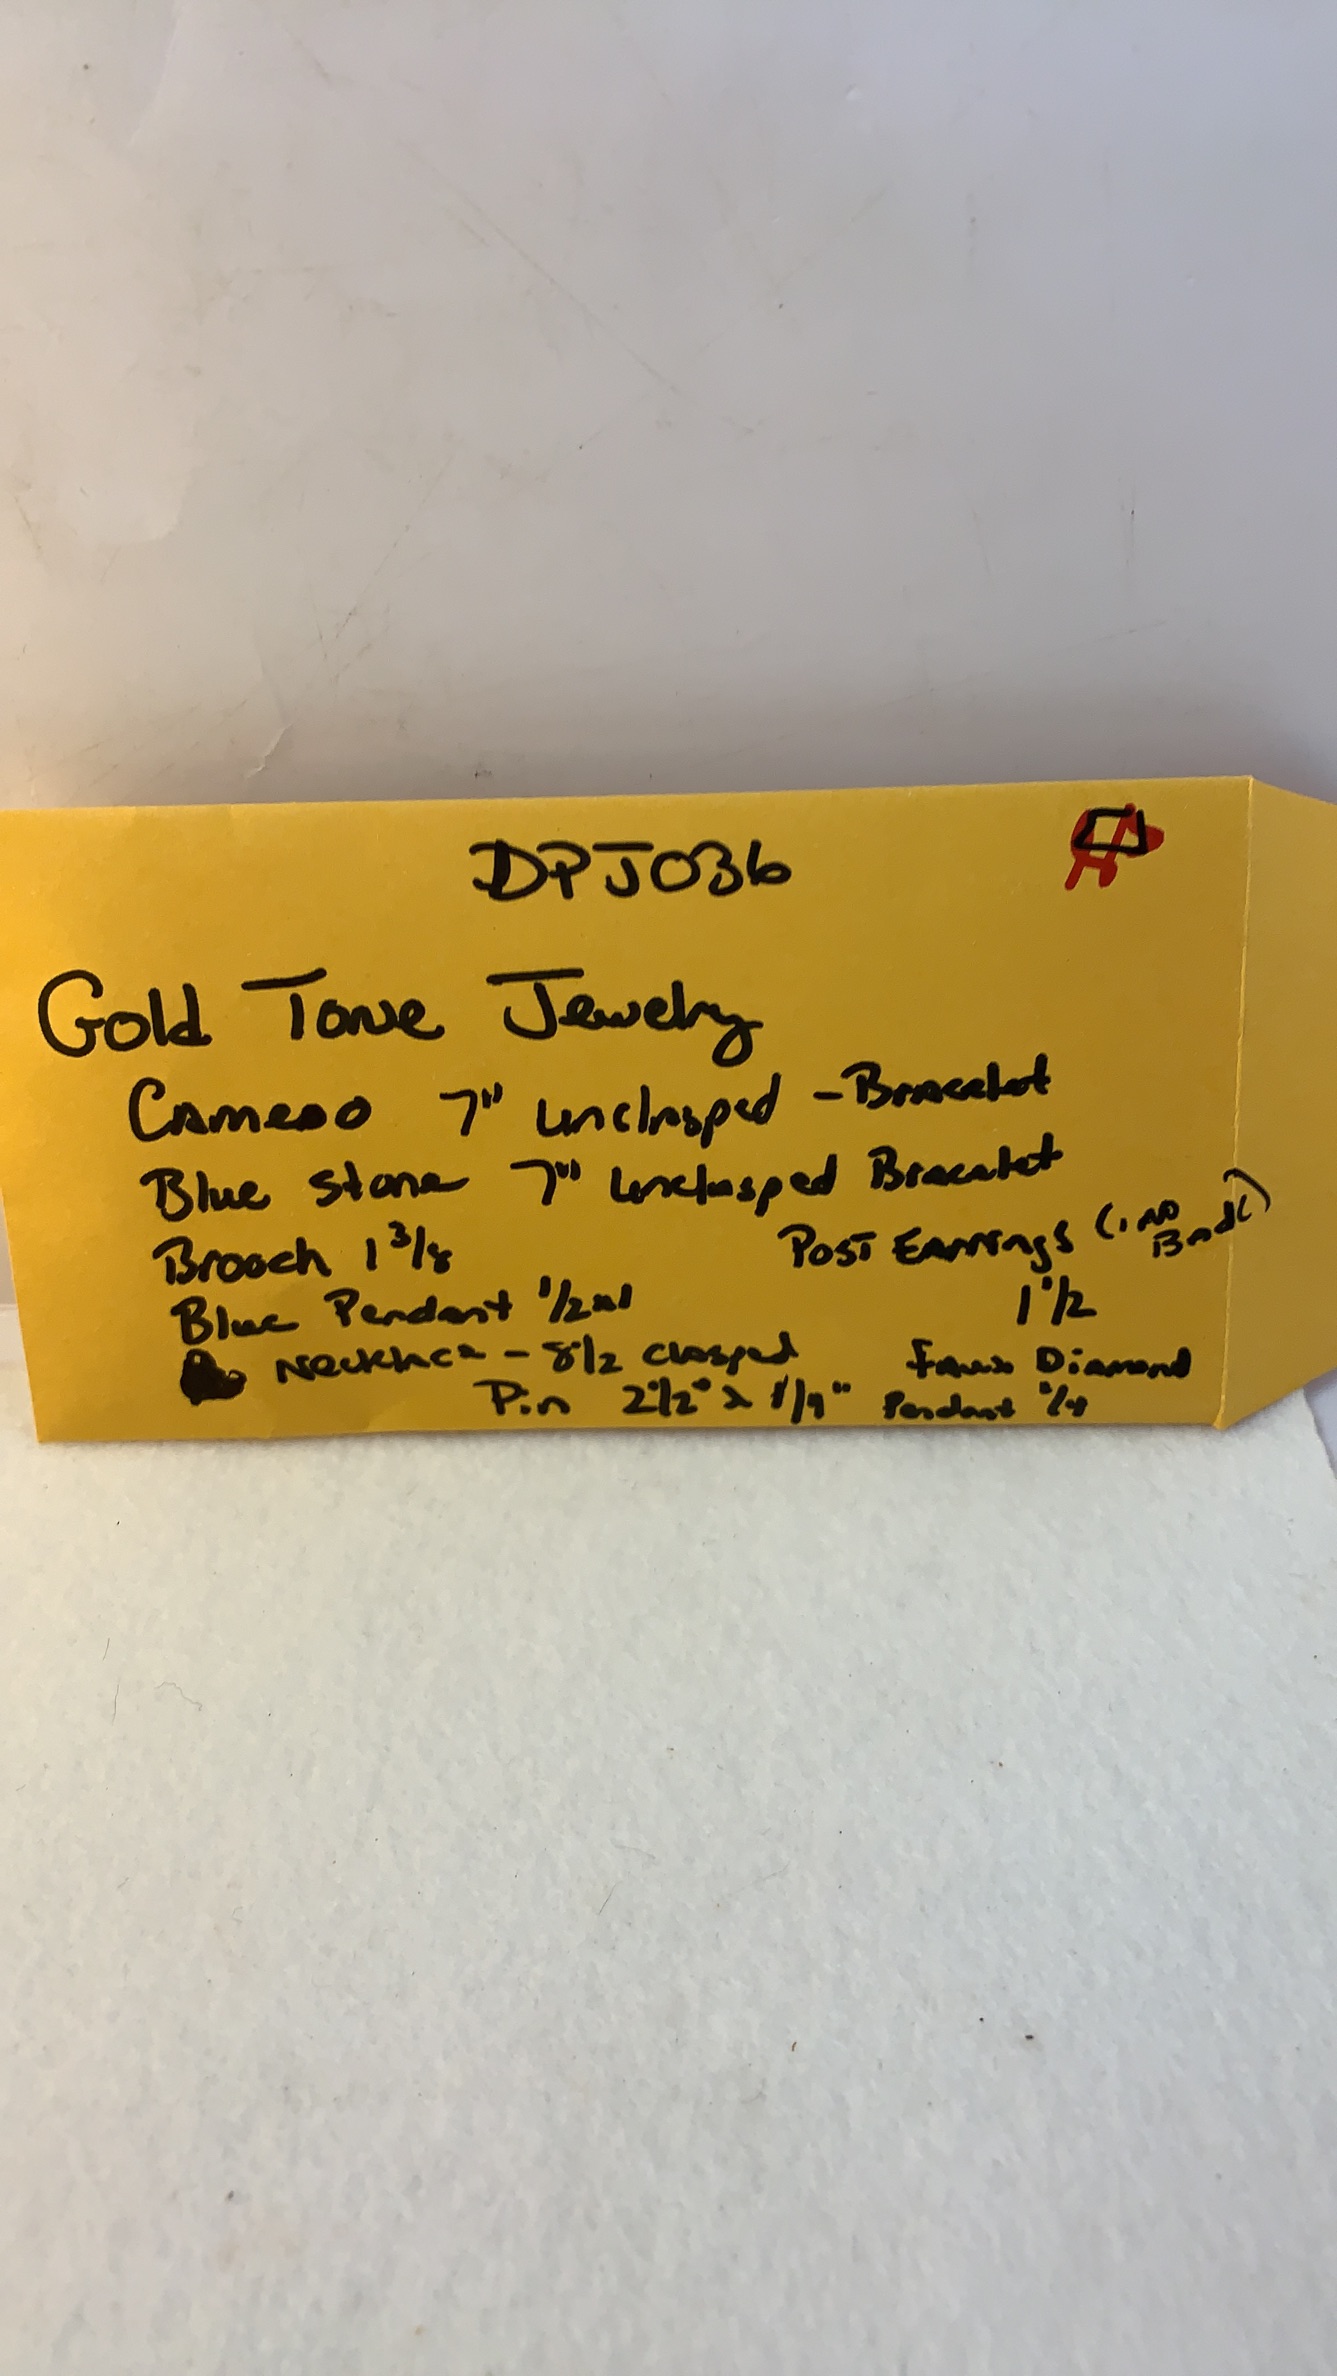 DPJ036
Gold Tone Jewelry
Cameo 7" unclasped - Bracelet
Blue Stone 7" unclasped Bracelet
Brooch 1 3/8
Post Earrings (1 no Back)
1 1/2
Blue Pendant 1/2
Necklace - 8 1/2 clasped
Faux Diamond
Pendant
Pin 2 1/2" x 1/4"